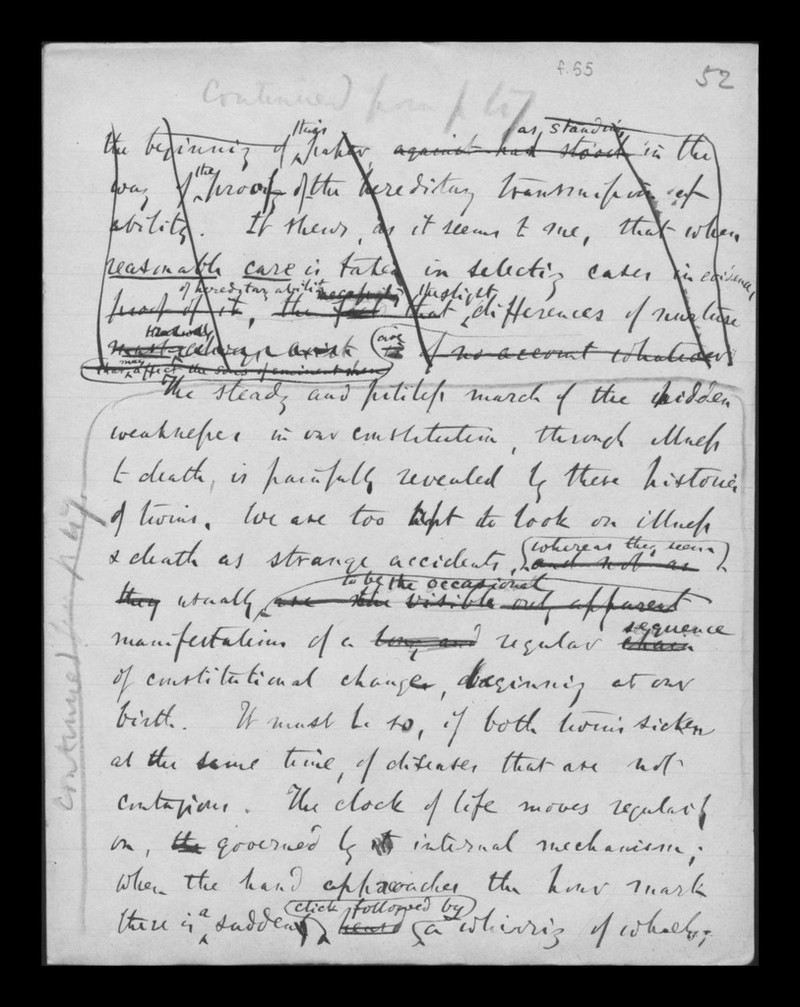 f.55
52
Continued from p 47
this as standing
the beginning of paper, against had stood in the
the
way of proof of the hereditary transmission of
ability. It shews, as it seems to me, that when
reasonable care is taken in selecting cases in evidence
of hereditary ability necessity the slight
proof of it, the fact that differences of nurture
of no account whatever
may affect the sons of eminent men
The steady and pitiless march of the hidden
weaknesses in our constitution, through illness
to death, is painfully revealed by these histories
of twins. We are too apt to look on illness
& death as strange accidents, whereas they seem
and not as
to be the occasional
they usually are the visible only apparent
manifestations of a long, and regular chain sequence
of constitutional changes, beginning at our
birth. It must be so, if both twins sicken
at the same time, of diseases that are not
contagious. The clock of life moves regularly
on, the governed by internal mechanism;
when the hand approaches the hour mark
click followed by
there is a sudden a whirring of wheels;
Continued from p 47.